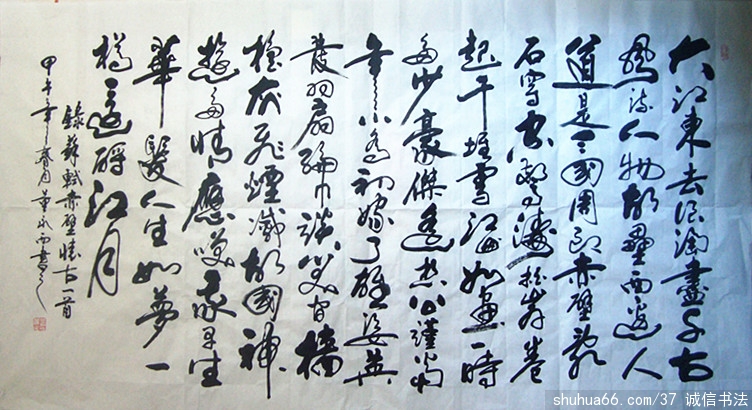 大江东去浪淘盡千古
風流人物故壘西邊人
道是三國周郎赤壁亂
石穿空驚濤拍岸卷
起千堆雪江山如畫一時
多少豪傑遙想公瑾當
年小喬初嫁了雄姿英
發羽扇綸巾談笑間檣
櫓灰飛煙滅故國神
遊多情應笑我早生
華髮人生如夢一
樽還酹江月
錄蘇軾赤壁懷古一首
甲午年春月董永西書
shuhua66.com/37 诚信书法